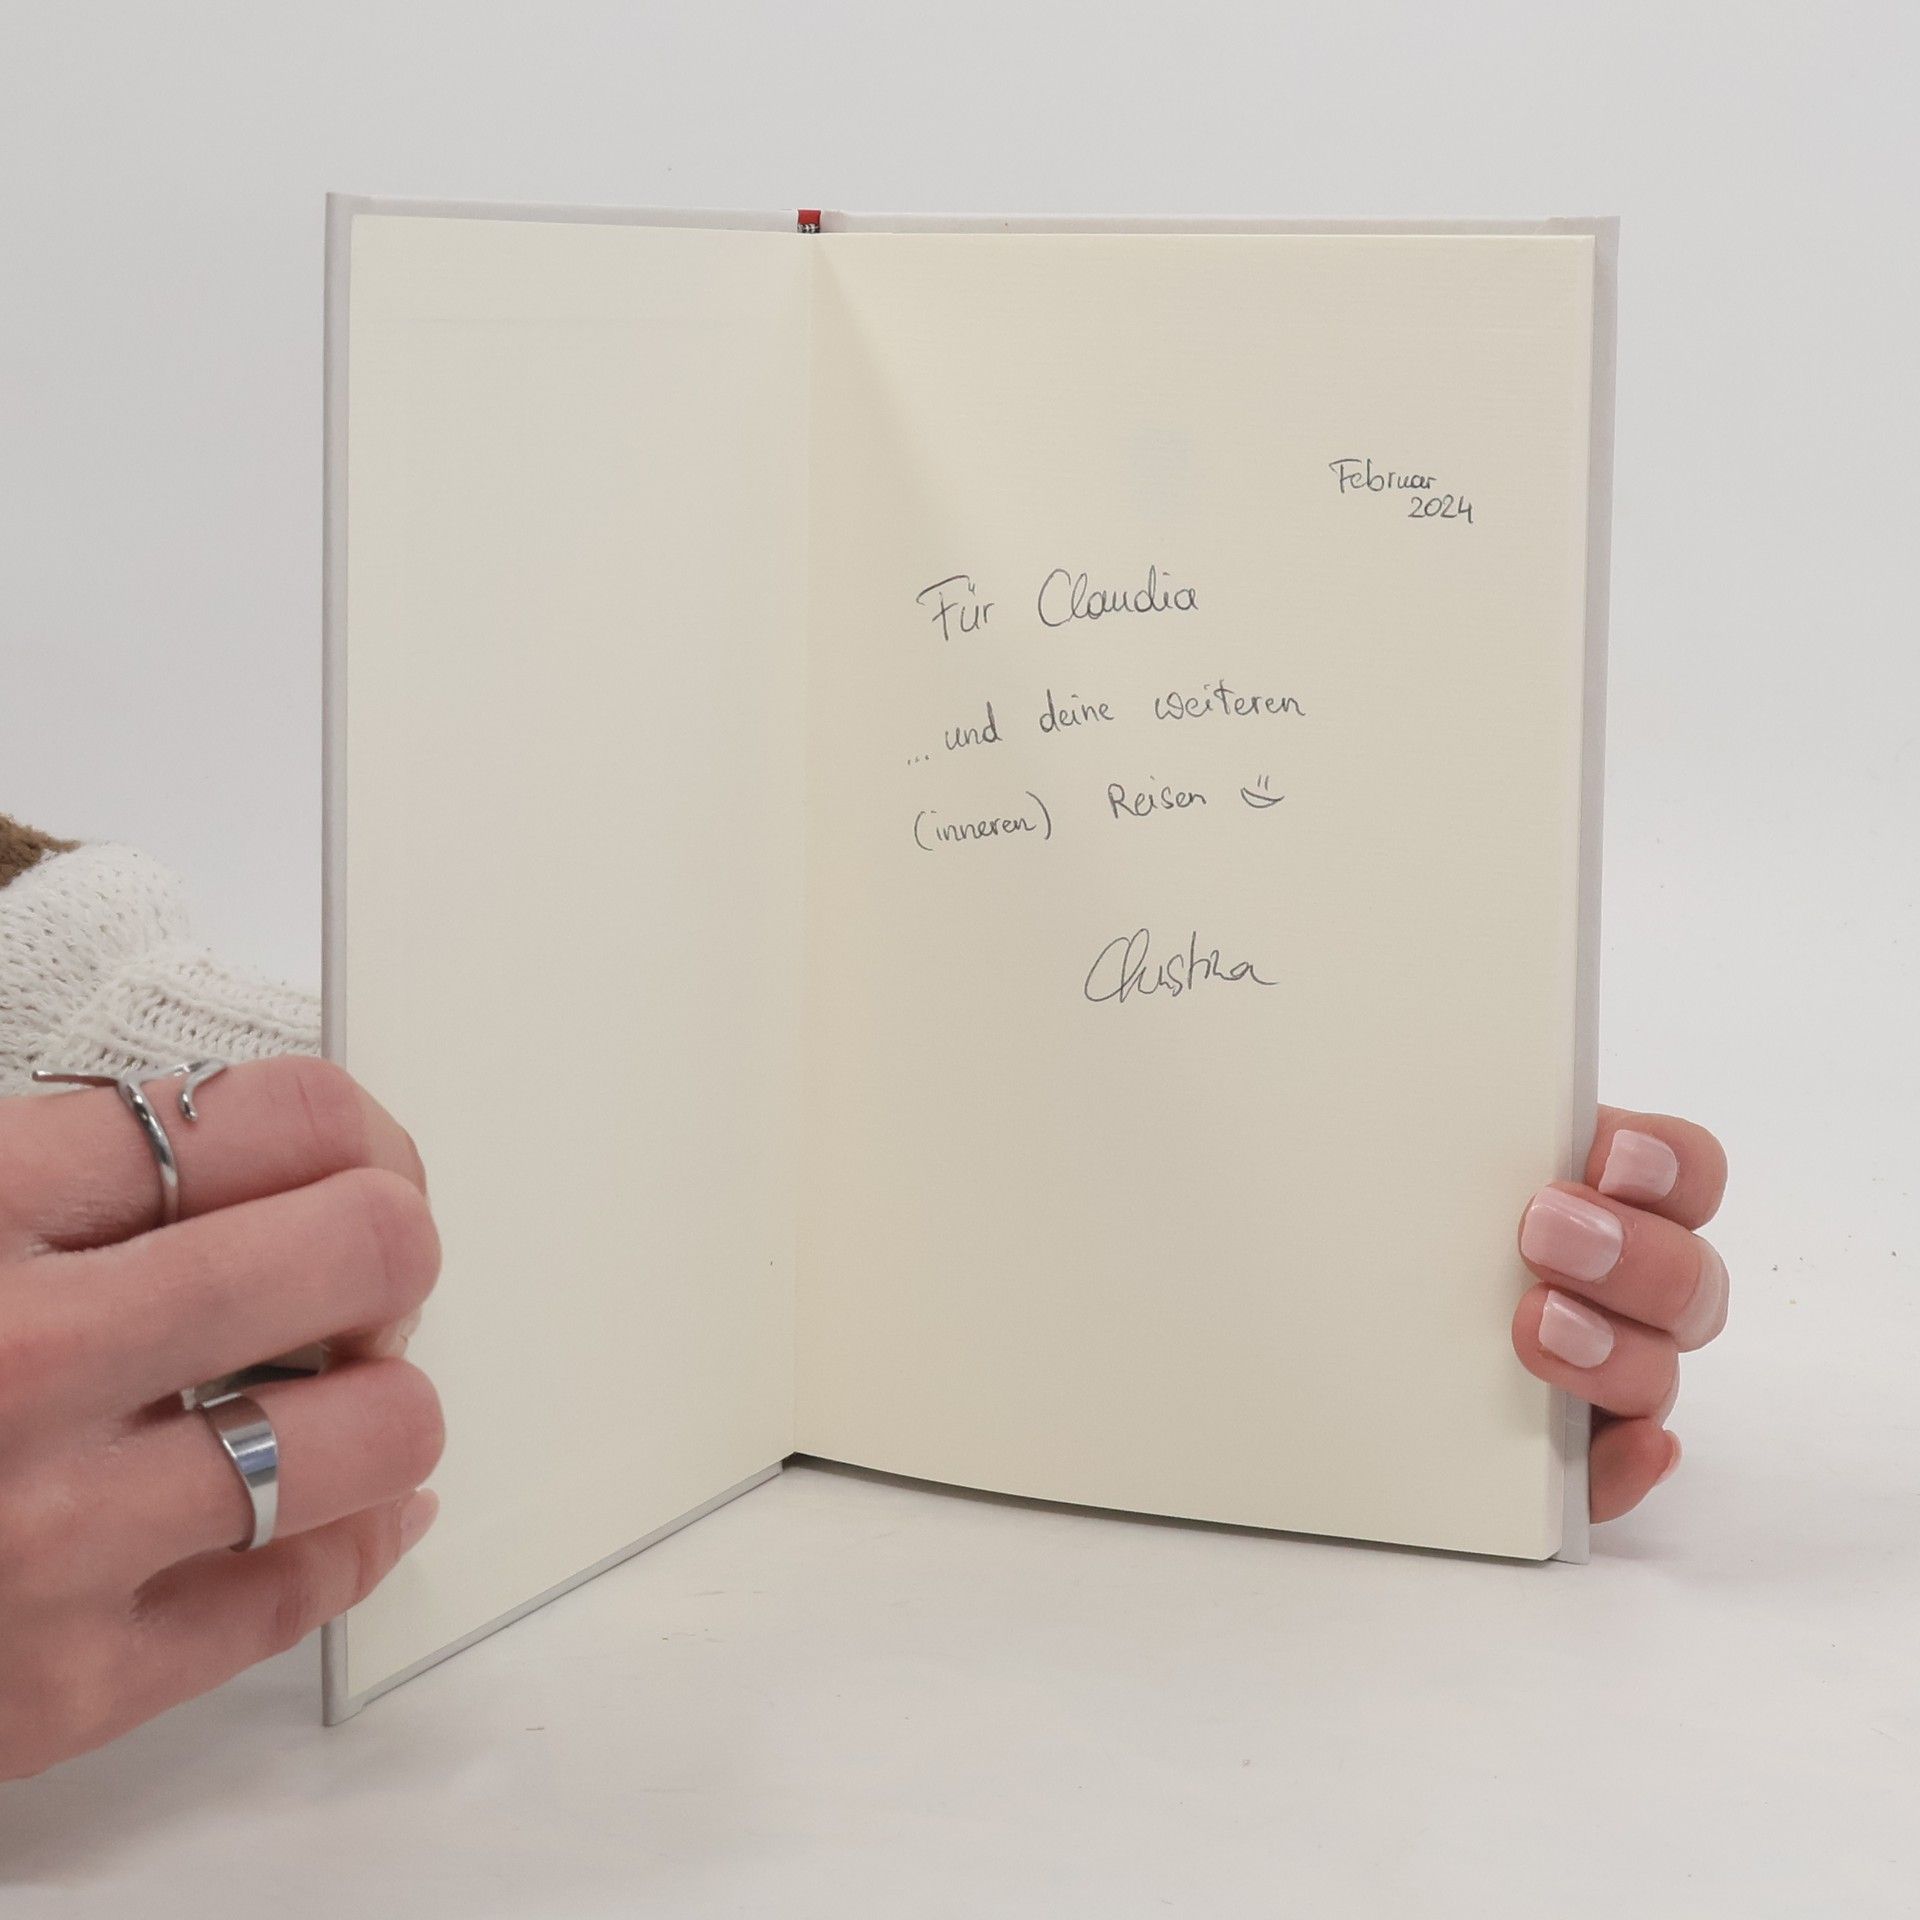 Februar
2024
Für Claudia
...und deine weiteren
(inneren) Reisen
Christina